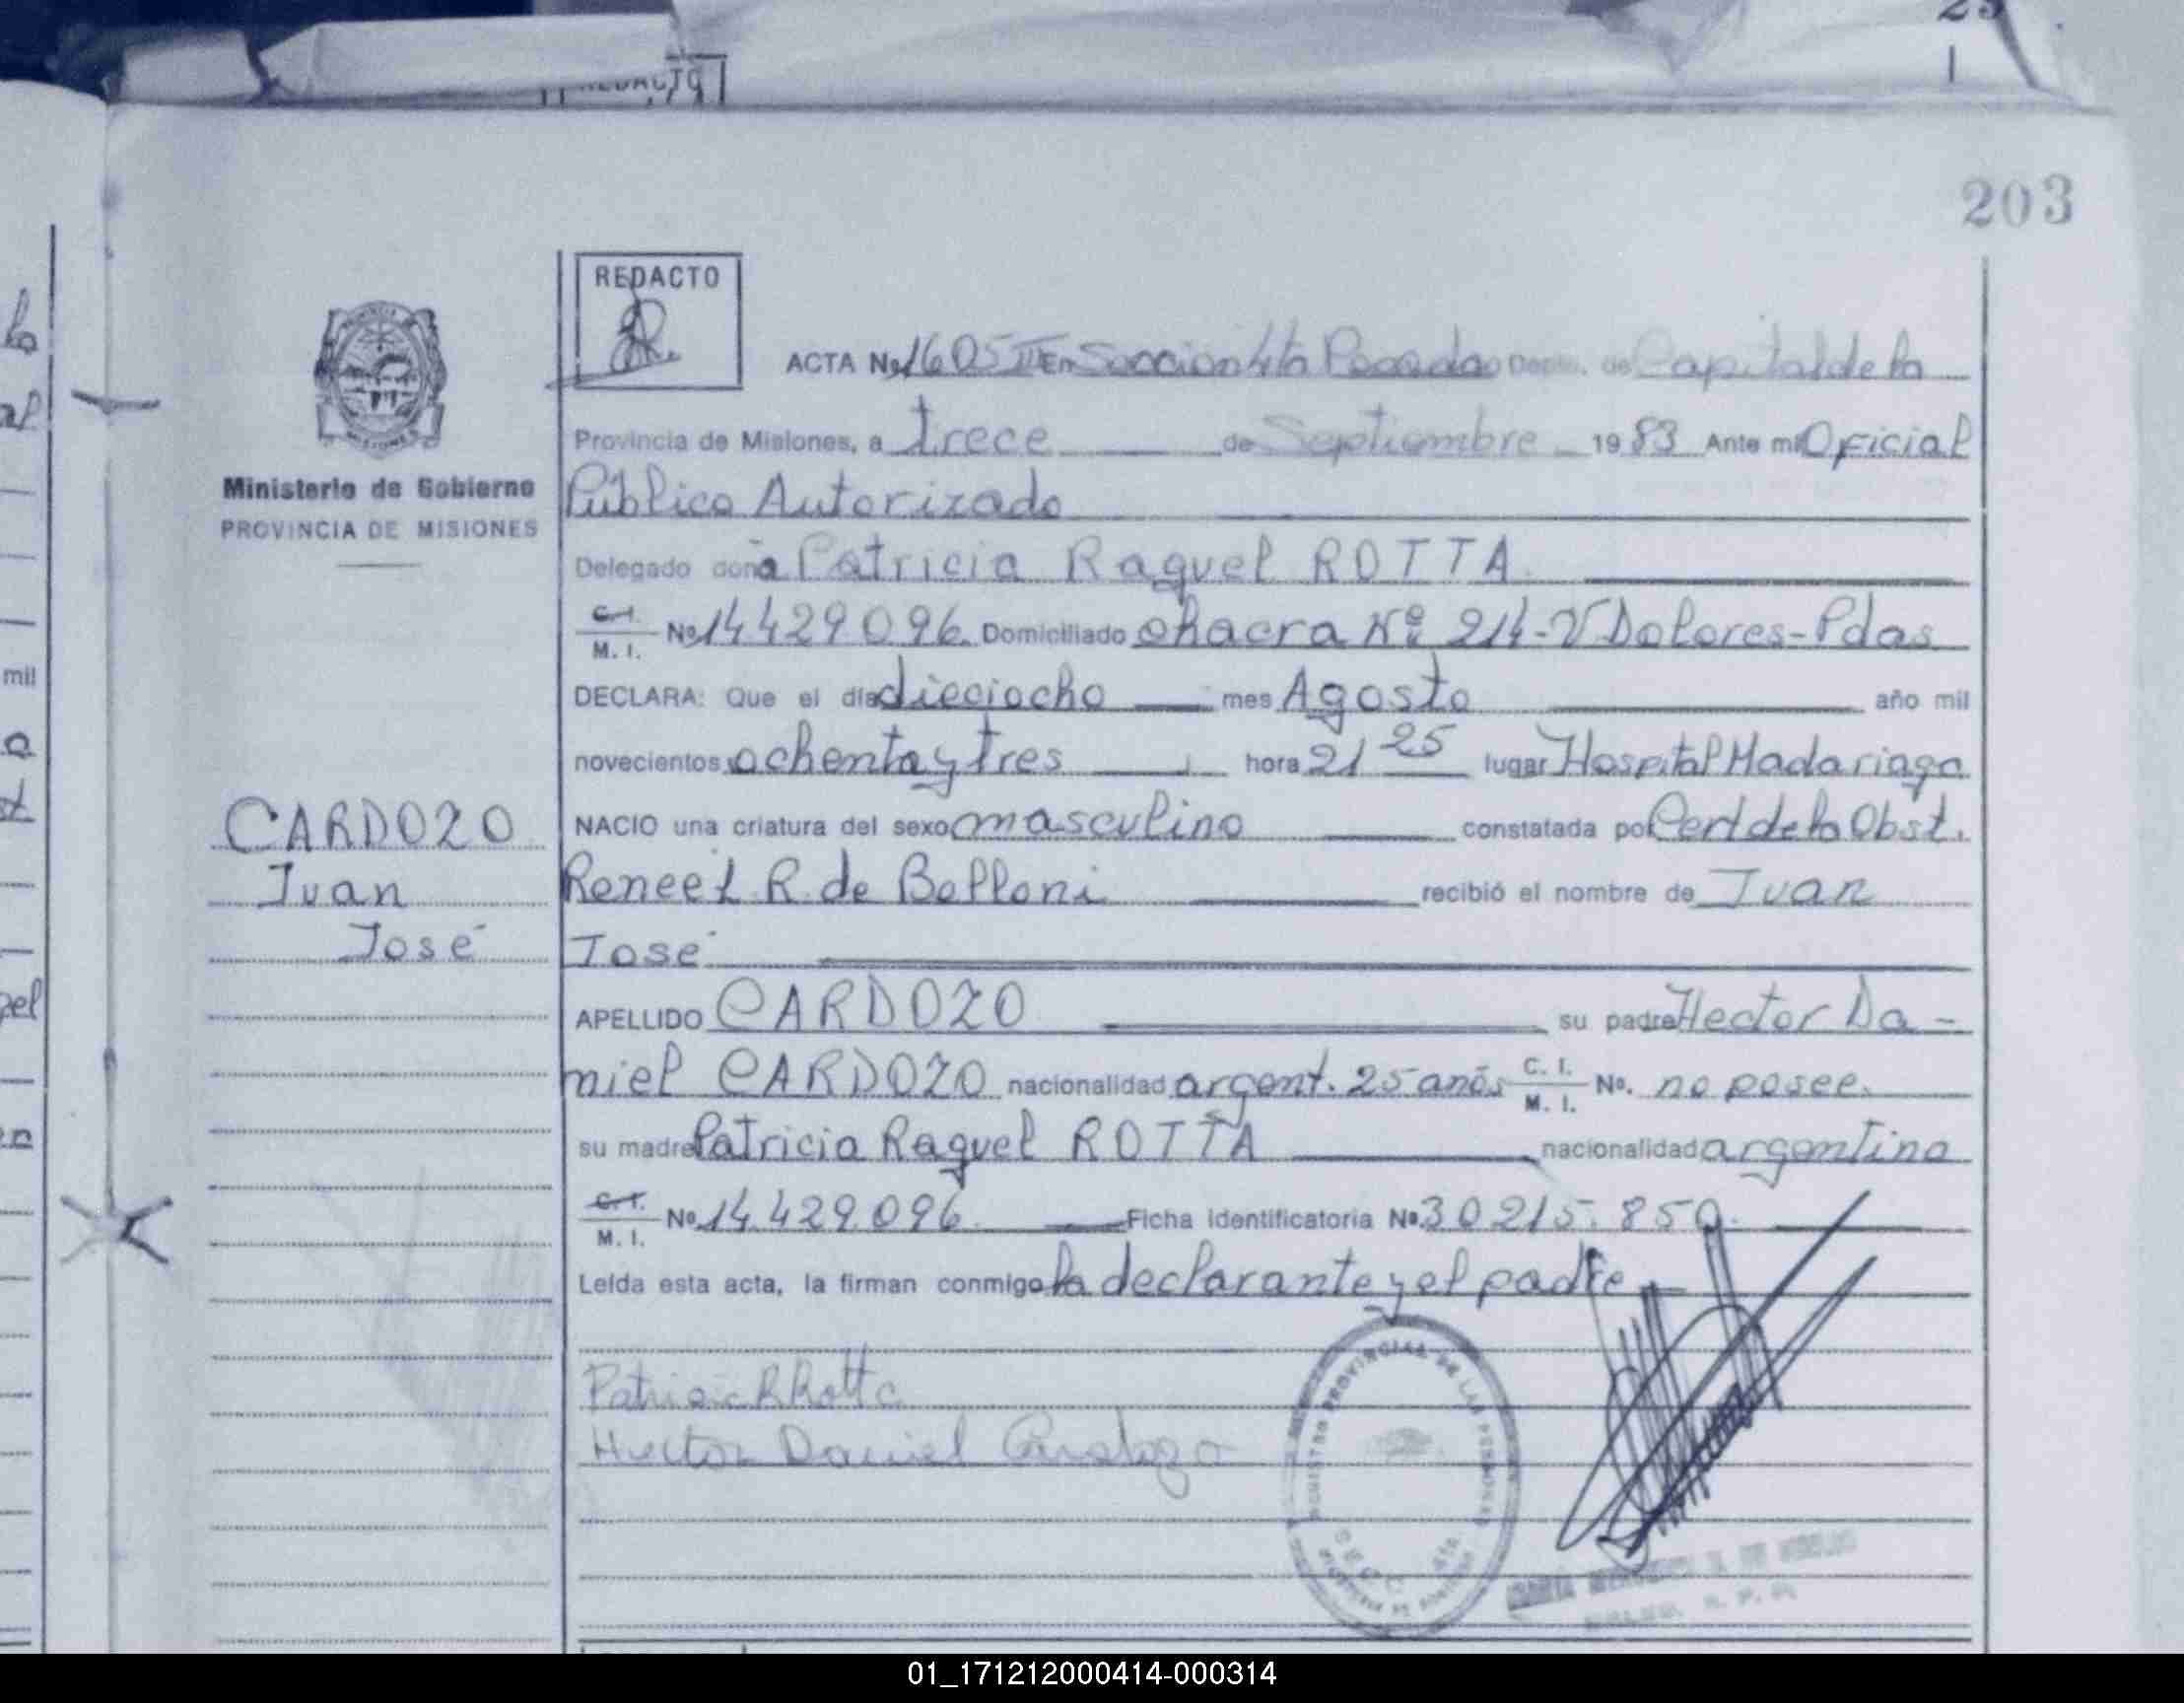 REDACTO
203
REDACTO
ACTA Nº 1605 III En Sección 4ta Posadas Depto. de Capital de la
Provincia de Misiones, a trece de Septiembre 1983 Ante mi Oficial
Ministerio de Gobierno
PROVINCIA DE MISIONES
Público Autorizado
Delegado doña Patricia Raquel ROTTA
C.I. M. I. Nº 14429096. Domiciliado chacra Nº 214-V Dolores-Pdas
DECLARA: Que el día dieciocho mes Agosto año mil
novecientos ochenta y tres hora 21 25 lugar Hospital Madariaga
CARDOZO
Juan
José
NACIO una criatura del sexo masculino constatada por Cert de la Obst.
Reneé L. R. de Belloni recibió el nombre de Juan
José
APELLIDO CARDOZO su padre Hector Da-
niel CARDOZO nacionalidad argent. 25 años C. I. M. I. Nº. no posee.
su madre Patricia Raquel ROTTA nacionalidad argentina
C. I. M. I. Nº 14.429.096 Ficha Identificatoria Nº 30215.850.
Leída esta acta, la firman conmigo la declarante y el padre
Patricia R Rotta
Hector Daniel Cardozo
REGISTRO PROVINCIAL DE LAS PERSONAS
01_171212000414-000314